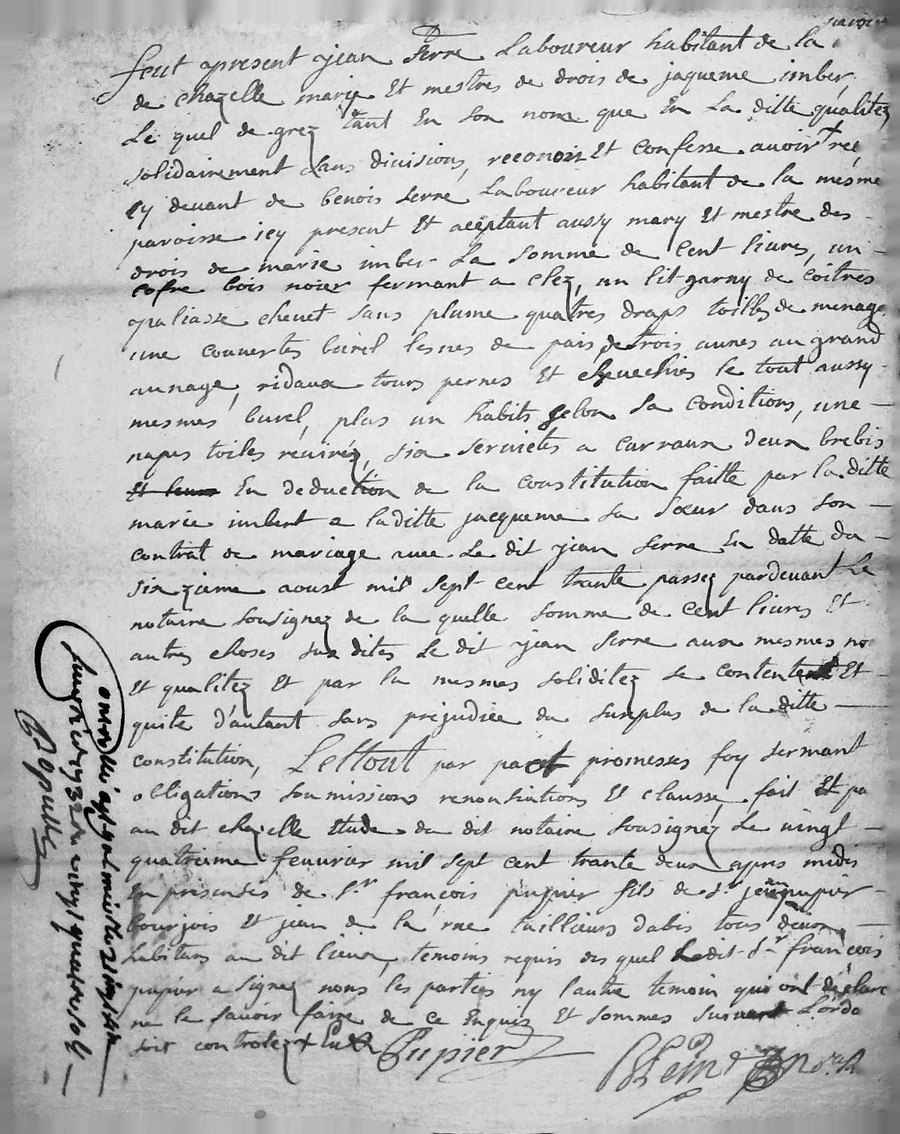 feut present jean Serre Laboureur habitant de la
de chazelle mary Et mestres de drois de jaqueme imber
Le quel de grez tant En son nom que En La ditte qualitez
solidairement sans divisions, reconoit Et confesse avoir
cy devant de benois serre Laboureur habitant de la mesme
paroisse icy present Et aceptant aussy mary Et mestre des
drois de marie imber La somme de Cent livres, un
cofre bois noier fermant a clez, un lit garny de coitres
paliasse chevet sans plume quatres draps toilles de menage
une couvertes burel lesnes de pais, de trois aunes au grand
aunage, ridaux tours pernes Et le tout aussy
mesmes burel, plus un habits selon sa conditions, une
napes toiles six servietes a carraux deux brebis
En deduction de la constitution faitte par la ditte
marie imbert a laditte jacqueme sa soeur dans son
contrat de mariage avec Le dit jean serre En datte du
sixzieme aoust mil sept cent trante passez pardevant Le
notaire sousignez de la quelle somme de Cent livres Et
autres choses sus dites Le dit jean serre aux mesmes no
Et qualitez Et par la mesmes soliditez se contente Et
quite d'autant sans prejudice du surplus de la ditte
constitution, Lettout par pact promesses foy sermant
obligations soumissions renontiations Et clausse, fait Et pa
au dit chazelle Etude du dit notaire sousignez Le vingt
quatrieme feuvrier mil sept cent trante deux apres midis
En presenses de Sr françois pupier fils de Sr jean pupier
bourjois Et jean de la rue taillieurs dabis tous deux
habitans au dit lieux, temoins requis des quel Ledit Sr françois
pupier a signez nons les parties ny l'autre temoin qui ont declare
ne le savoir faire de ce Enquis Et sommes suivant Lordo
soit controlez Pupier